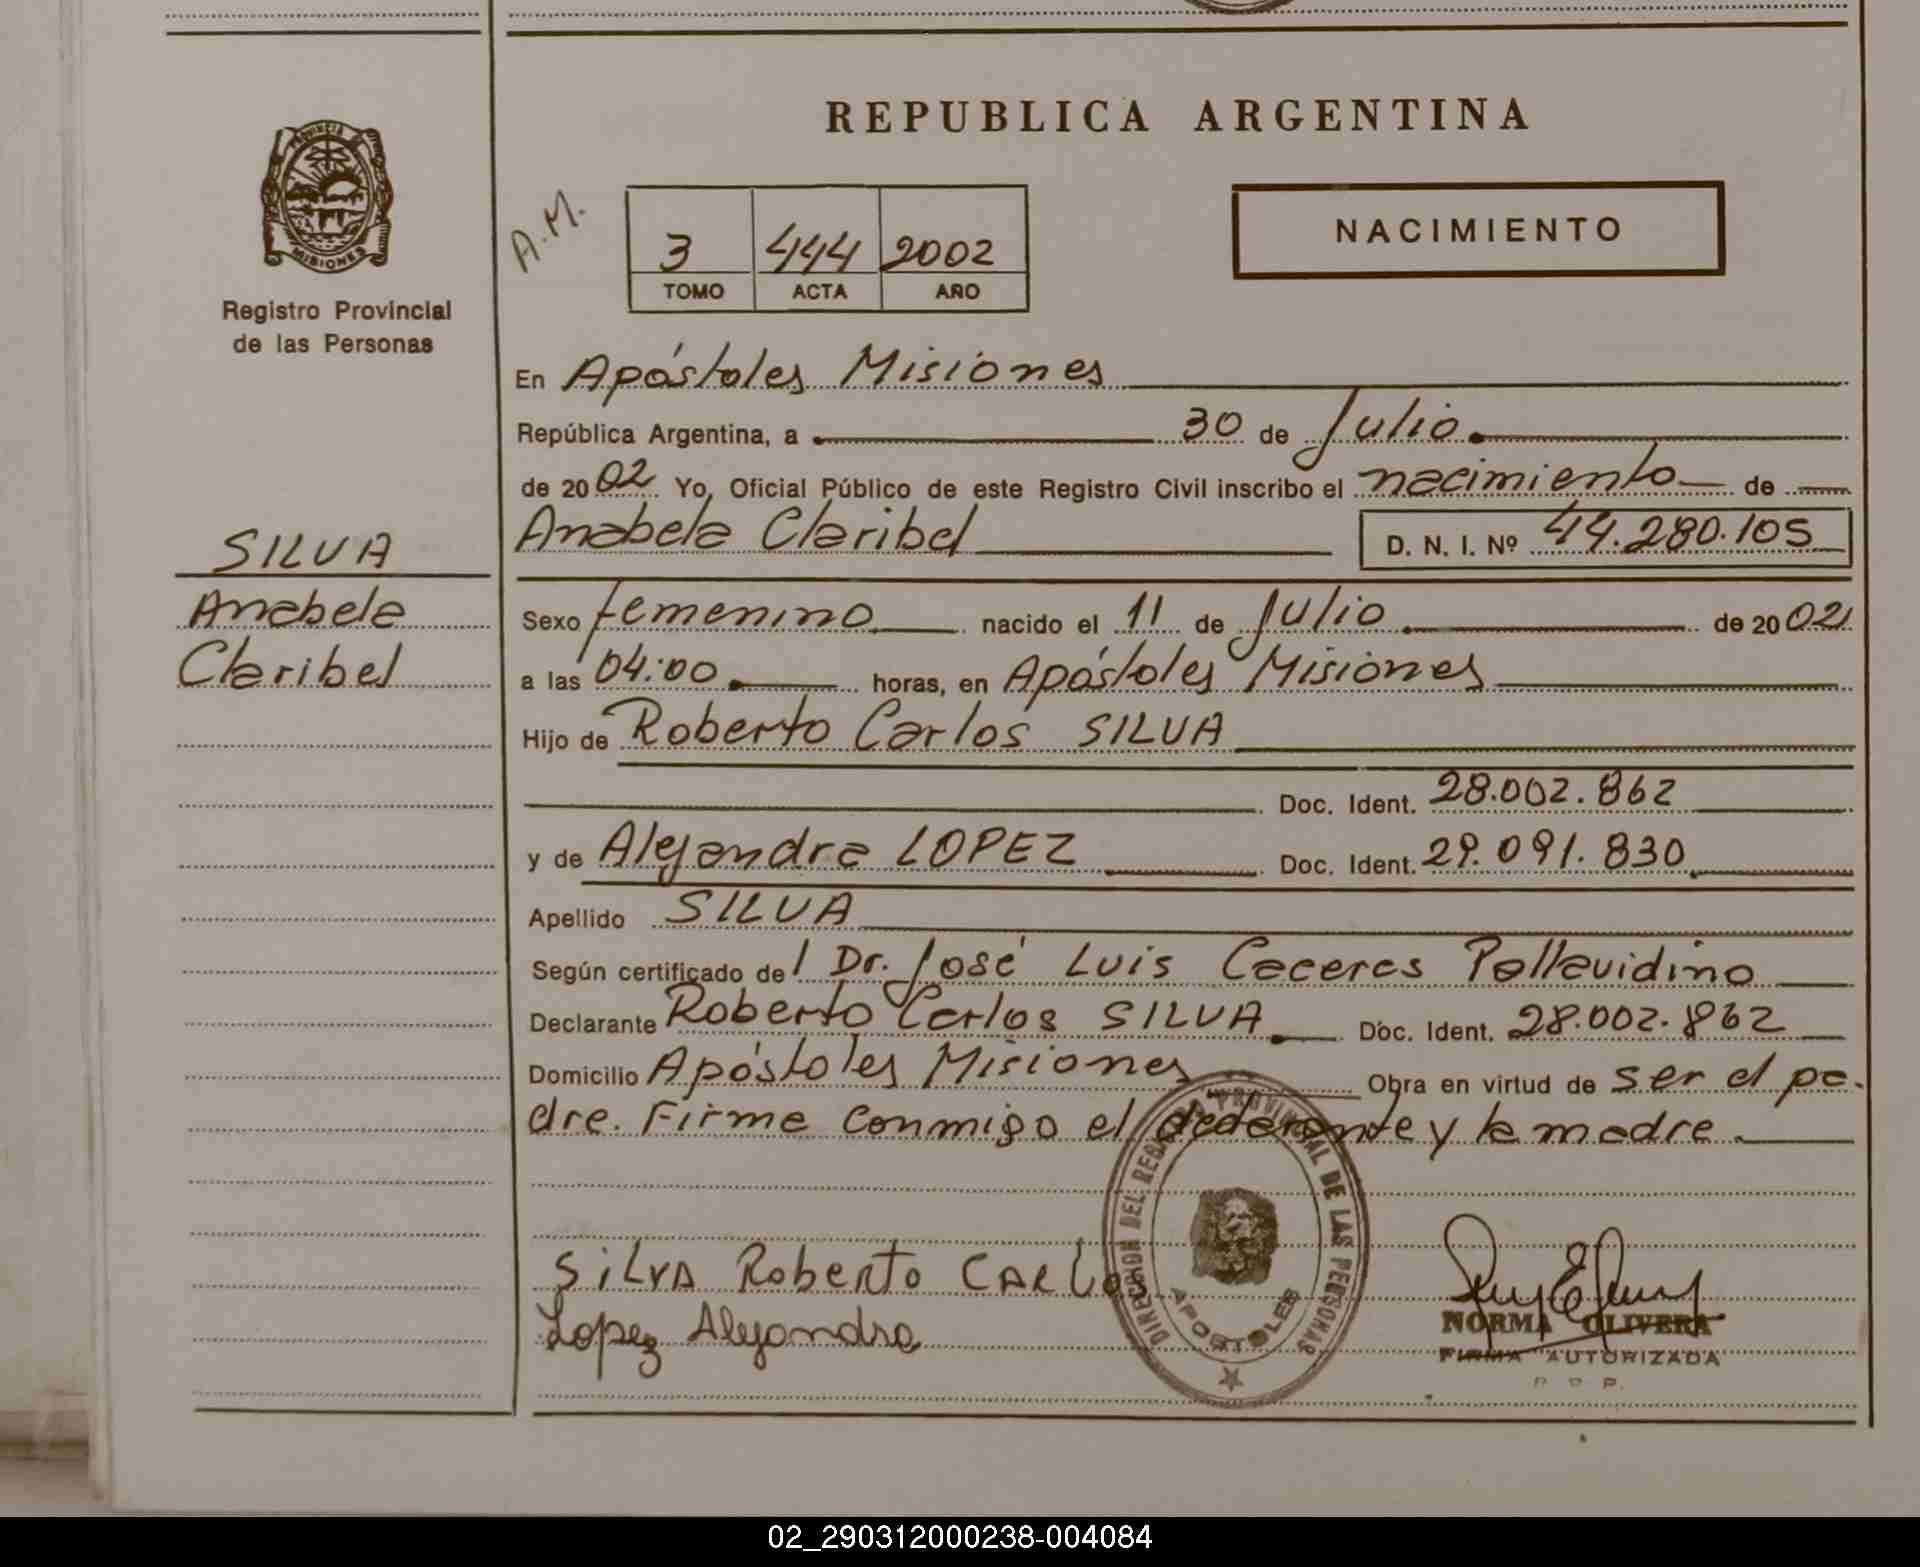 REPUBLICA ARGENTINA
PROVINCIA DE
MISIONES
Registro Provincial
de las Personas
A.M.
3 444 2002
TOMO ACTA AÑO
NACIMIENTO
En Apóstoles Misiones
República Argentina, a 30 de Julio
de 2002 Yo, Oficial Público de este Registro Civil inscribo el nacimiento de
Anabela Claribel D. N. I. Nº 44.280.105
SILVA
Anabela
Claribel
Sexo femenino nacido el 11 de Julio de 2002
a las 04:00 horas, en Apóstoles Misiones
Hijo de Roberto Carlos SILVA
Doc. Ident. 28.002.862
y de Alejandra LOPEZ Doc. Ident. 29.091.830
Apellido SILVA
Según certificado del Dr. José Luis Caceres Pallavidino
Declarante Roberto Carlos SILVA Doc. Ident. 28.002.862
Domicilio Apóstoles Misiones Obra en virtud de ser el pa-
dre. Firma conmigo el declarante y la madre.
DIRECCION DEL REGISTRO PROVINCIAL DE LAS PERSONAS
APOSTOLES
SiLVA Roberto CARLos
Lopez Alejandra
NORMA OLIVERA
FIRMA AUTORIZADA
02_290312000238-004084